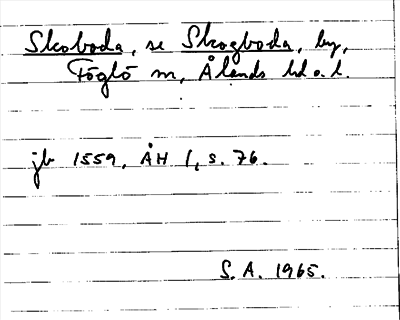 Skoboda, se Skogboda, by,
Föglö sn, Ålands hd o. l.
jb 1559, ÅH 1, s. 76.
S. A. 1965.